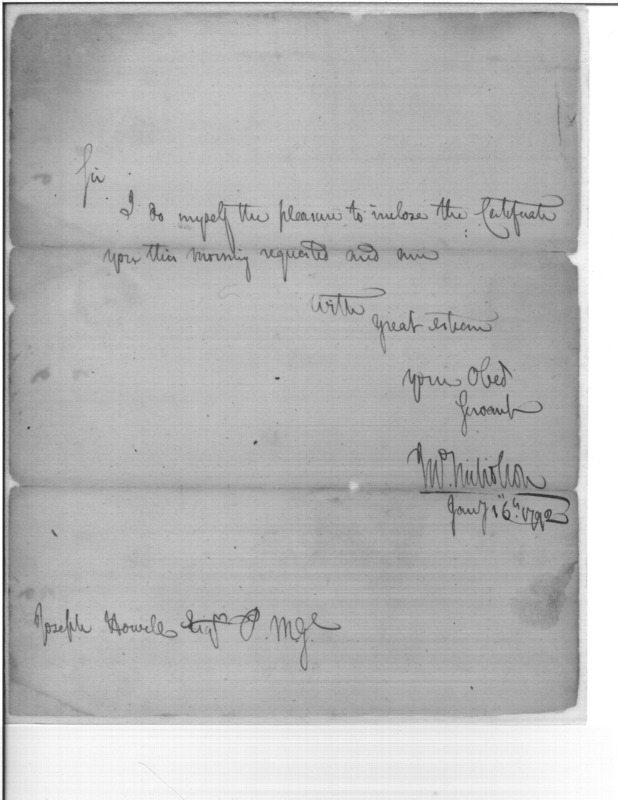 Sir
I do myself the pleasure to inclose the Certificate
you this morning requested and am
with
great esteem
your Obed
Servant
Wm. Nicholson
Jany 16th. 1792
Joseph Howell Esqr P. M Gl